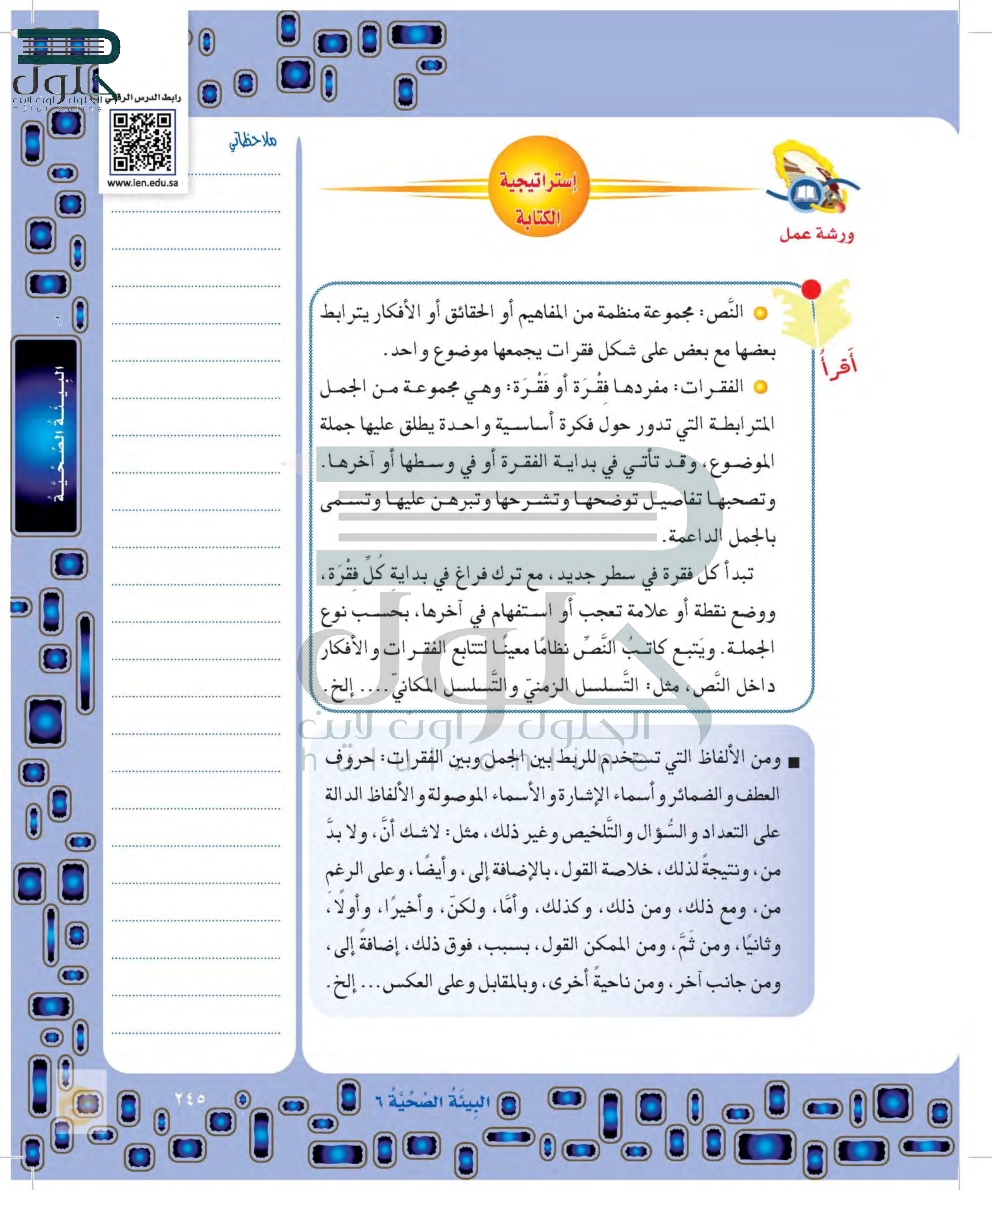 حلول
الحلول اون لاين
رابط الدرس الرقمي
www.ien.edu.sa
ملاحظاتي
ورشة عمل
إستراتيجية
الكتابة
أَقرأُ
النَّص: مجموعة منظمة من المفاهيم أو الحقائق أو الأفكار يترابط
بعضها مع بعض على شكل فقرات يجمعها موضوع واحد.
الفقرات: مفردها فِقْرَة أو فَقْرَة: وهي مجموعة من الجمل
المترابطة التي تدور حول فكرة أساسية واحدة يطلق عليها جملة
الموضوع، وقد تأتي في بداية الفقرة أو في وسطها أو آخرها.
وتصحبها تفاصيل توضحها وتشرحها وتبرهن عليها وتسمى
بالجمل الداعمة.
تبدأ كل فقرة في سطر جديد، مع ترك فراغ في بدايةِ كُلِّ فِقْرَة،
ووضع نقطة أو علامة تعجب أو استفهام في آخرها، بحسب نوع
الجملة. ويَتبع كاتبُ النَّصِّ نظامًا معينًا لتتابع الفقرات والأفكار
داخل النَّص، مثل: التَّسلسل الزمنيّ والتَّسلسل المكانيّ.... إلخ.
حلول
الحلول اون لاين
hulul online
■ ومن الألفاظ التي تستخدم للربط بين الجمل وبين الفقرات: حروف
العطف والضمائر وأسماء الإشارة والأسماء الموصولة والألفاظ الدالة
على التعداد والسُّؤال والتَّلخيص وغير ذلك، مثل: لاشك أنَّ، ولا بدَّ
من، ونتيجةً لذلك، خلاصة القول، بالإضافة إلى، وأيضًا، وعلى الرغم
من، ومع ذلك، ومن ذلك، وكذلك، وأمَّا، ولكنّ، وأخيرًا، وأولًا،
وثانيًا، ومن ثَمَّ، ومن الممكن القول، بسبب، فوق ذلك، إضافةً إلى،
ومن جانب آخر، ومن ناحيةً أخرى، وبالمقابل وعلى العكس... إلخ.
البِيئَةُ الصِّحِّيَّةُ
البِيئَةُ الصِّحِّيَّةُ ٦
٢٤٥